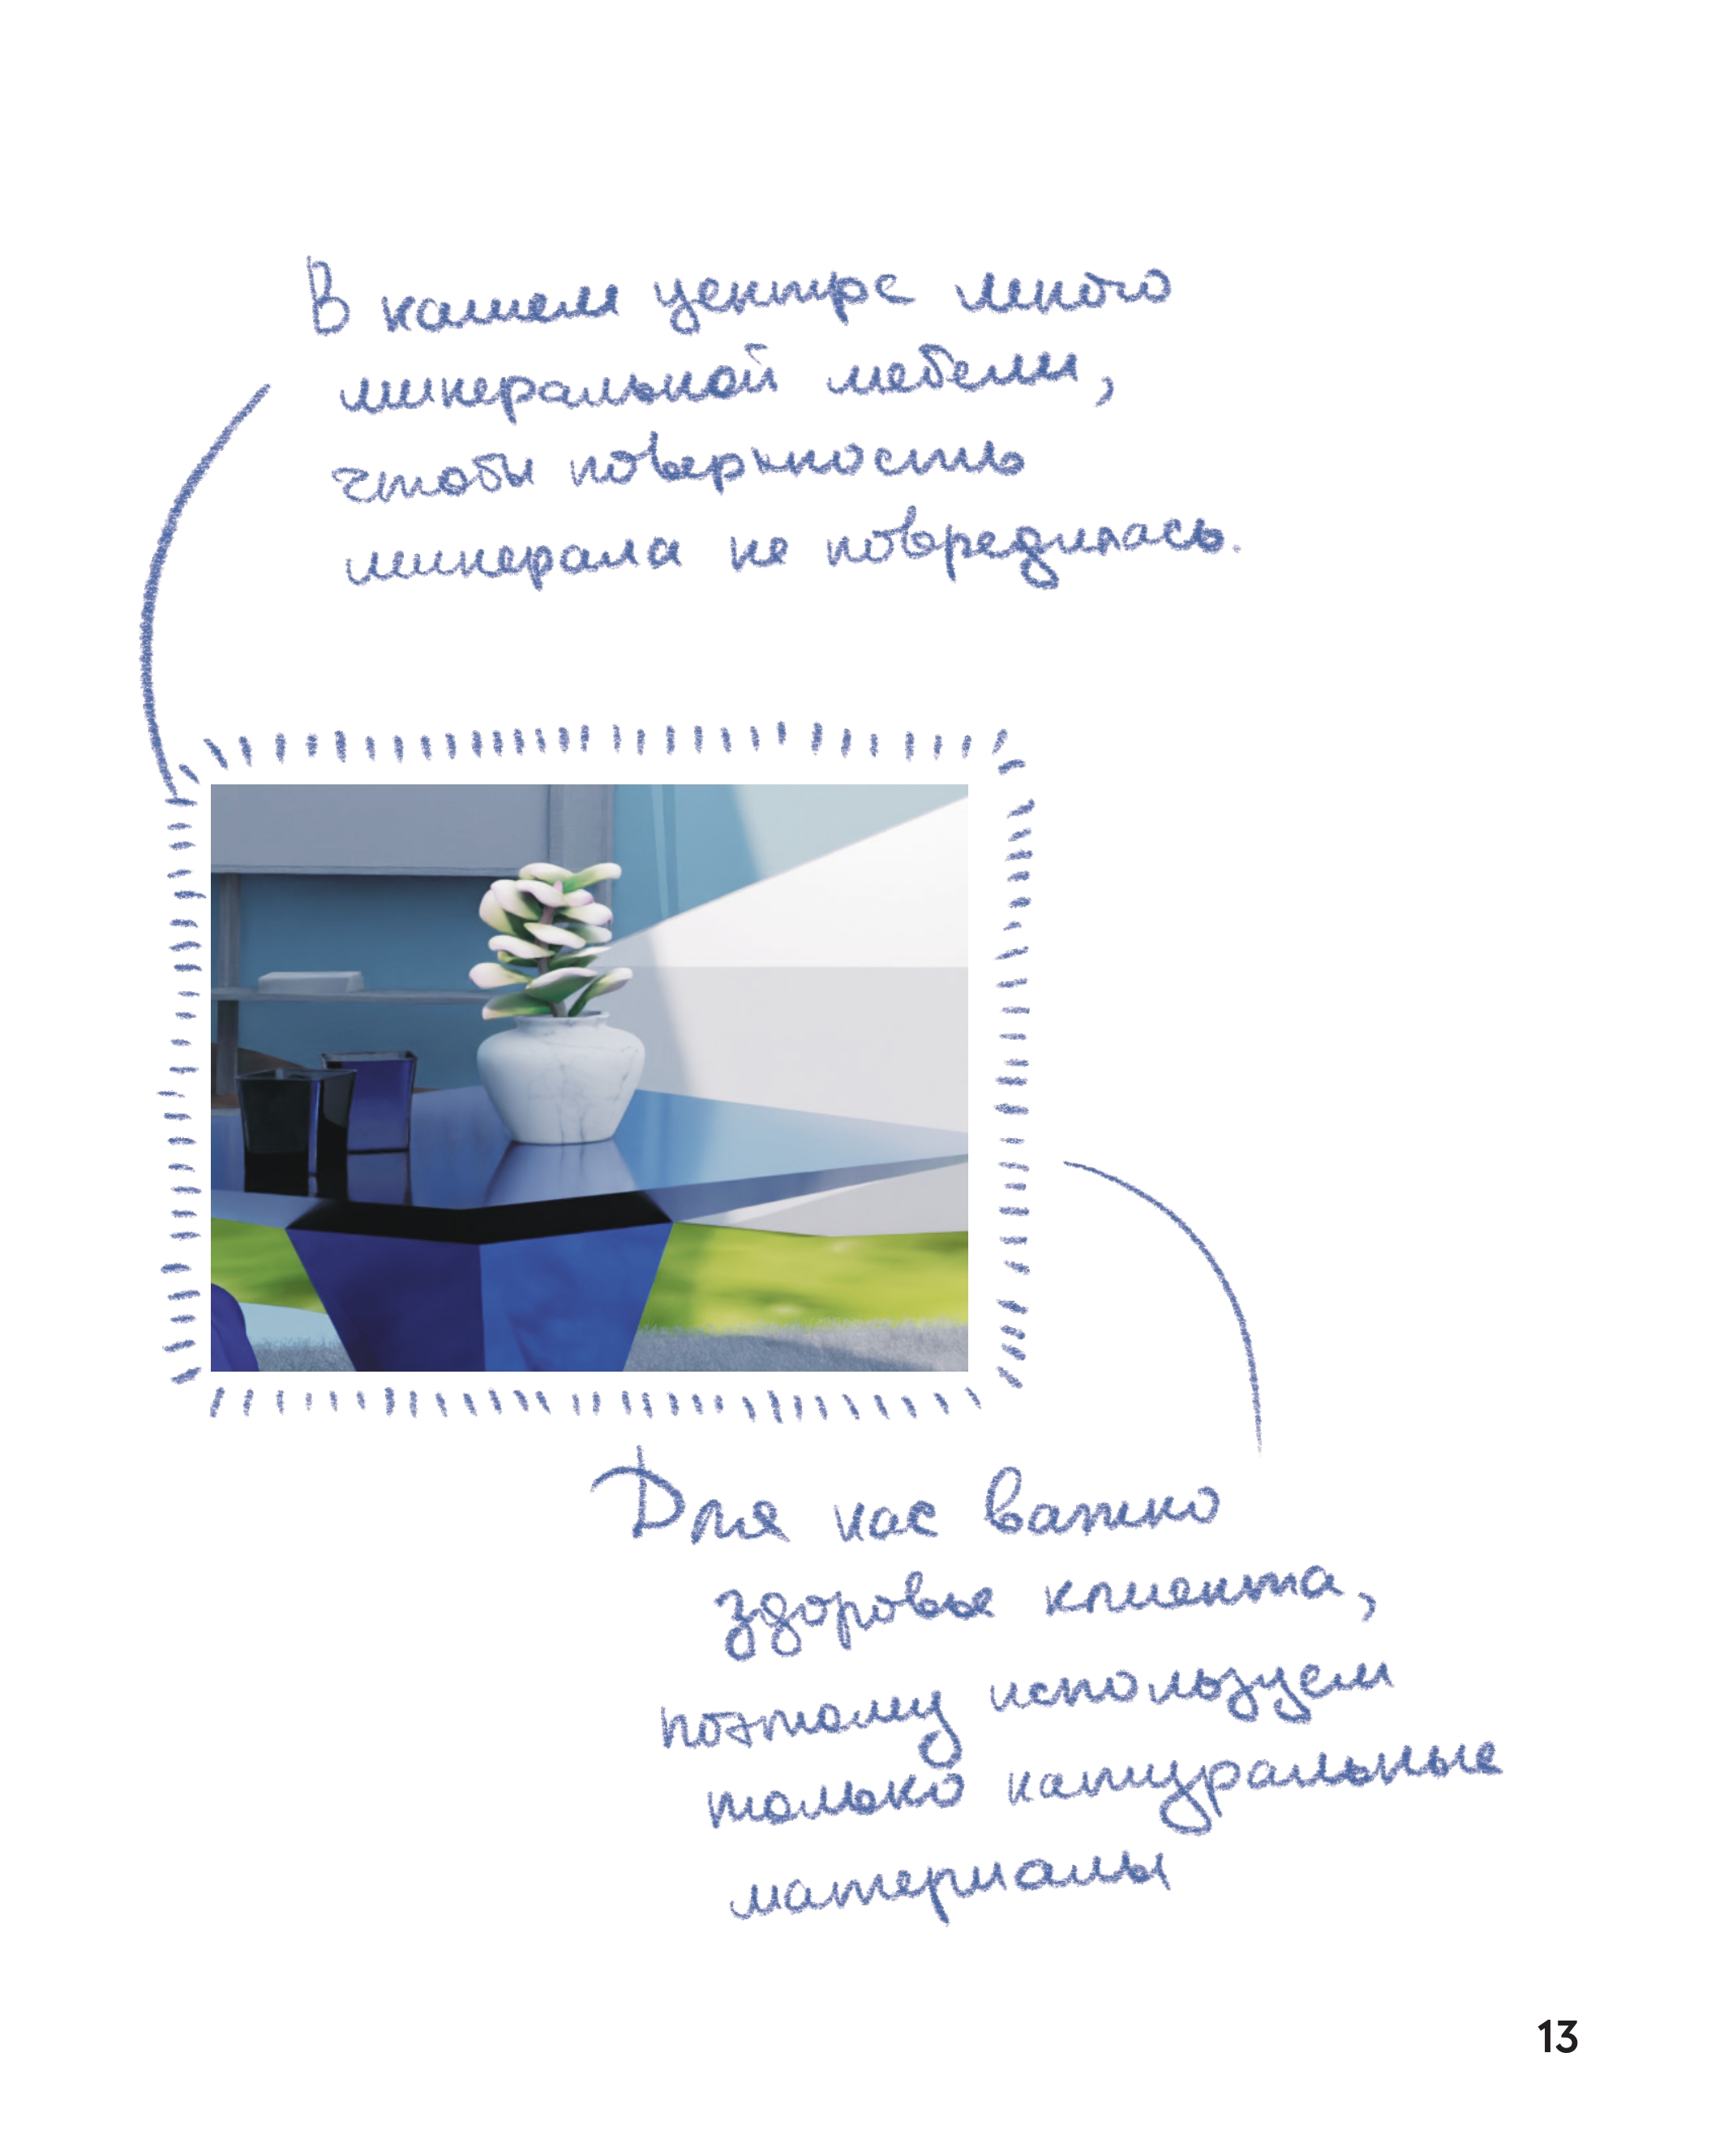 В нашем центре много
минеральной мебели,
чтобы поверхность
минерала не повредилась.
Для нас важно
здоровье клиента,
поэтому используем
только натуральные
материалы
13